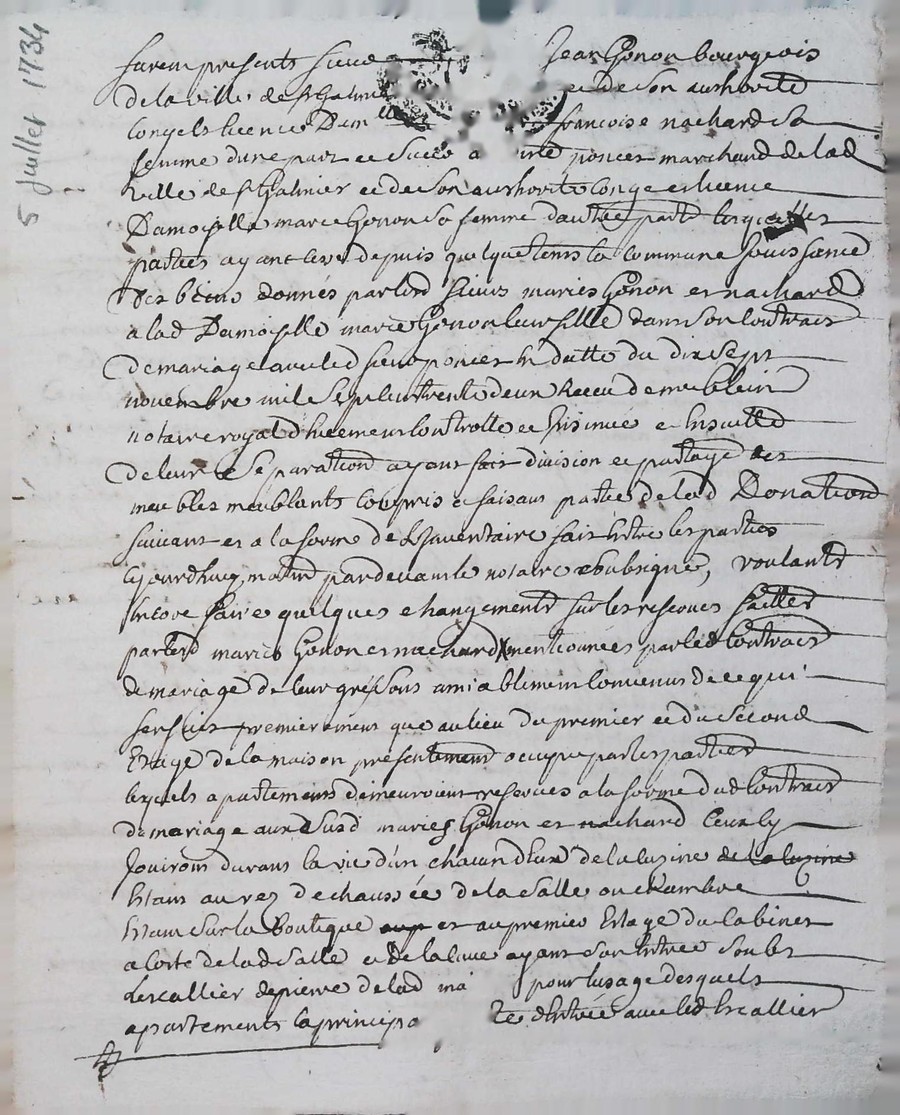 5 Juillet 1734
furent presents Sieur Jean Gonon bourgeois
de la ville de St Galmier et de son authorité
congé et licence Dam.lle francoise nachard sa
femme dune part et Sieur poncet marchand de lad
ville de St Galmier et de son authorité congé et licence
Damoiselle marie Gonon sa femme dautre part lesquelles
parties ayant levé depuis quelque tems la commune Jouissance
des biens donnés par lesd Sieurs mariés Gonon et nachard
a lad Damoiselle marie Gonon leur fille dans son contract
de mariage avec led sieur poncet en datte du dix sept
novembre mil sept cent trente deux Receu de
notaire royal duement controllé et Insinué et Ensuitte
de leur Separation ayant fait division et partage des
meubles meublants compris et faisant partie de lad Donation
suivant et a la forme de L'Inventaire fait Entre les parties
cejourdhuy matin pardevant le notaire soubsigné, voulants
Encore faire quelques changements sur les reserves faittes
par lesd mariés Gonon et nachard mentionnées par led Contract
de mariage de leur gré sont amiablement convenus de ce qui
sensuit premierement que au lieu du premier et du second
Etage de la maison presentement occupé par les parties
lesquels apartements demeuroient reservés a la forme dud Contract
de mariage auxd Susd mariés Gonon et nachard Ceux cy
Jouiront durant la vie d'un chacun d'Eux de la cuzine de la cuzine
Estant au rez de chaussée de la salle ou chambre
Estant sur la boutique et au premier Etage du Cabinet
a coste de lad Salle et de la cave ayant son Entrée soubs
Lescallier de pierre de lad ma pour lusage desquels
apartements la principa te dEntrée avec led Escallier